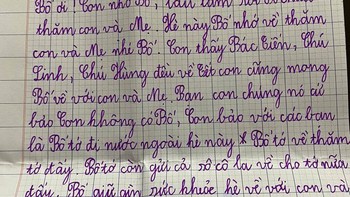 Bố ơi, Con nhớ Bố,
thăm con và Mẹ. Hè này Bố nhớ về thăm
con và Mẹ nhé Bố. Con thấy Bác Tiến, Chú
Linh, Chú Hùng đều về Tết con cũng mong
Bố về với con và Mẹ. Bạn con chúng nó cứ
bảo Con không có Bố, Con bảo với các bạn
là Bố tớ đi nước ngoài hè này Bố tớ về thăm
tớ đấy. Bố tớ còn gửi cả sô cô la về cho tớ nữa
đấy. Bố giữ gìn sức khỏe hè về với con và